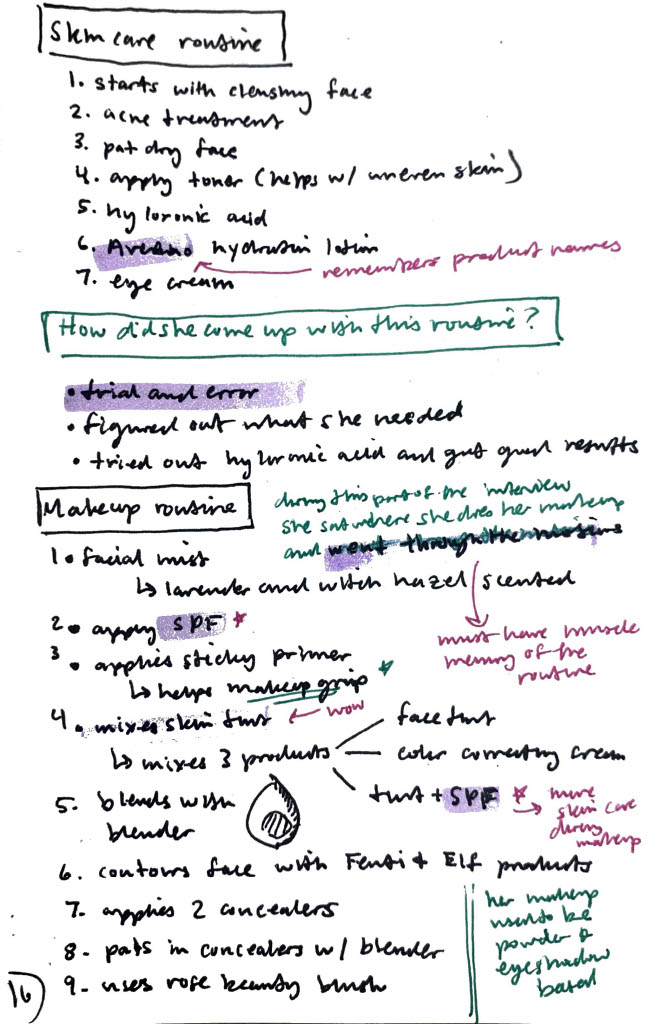 Skincare routine
1. starts with cleansing face
2. acne treatment
3. pat dry face
4. apply toner (helps w/ uneven skin)
5. hyloronic acid
6. Aveeno hydratin lotion
remembers product names
7. eye cream
How did she come up with this routine?
• trial and error
• figured out what she needed
• tried out hyloronic acid and got good results
Makeup routine
during this part of the interview
she sat where she does her makeup
and went through the motions
1. facial mist
↳ lavender and witch hazel scented
must have muscle
memory of the
routine
2. apply SPF *
3. applies sticky primer
↳ helps makeup grip *
4. mixes skin tint ← wow
↳ mixes 3 products
face tint
color correcting cream
tint + SPF * → more
skin care
during
makeup
5. blends with
blender
6. contours face with Fenti + Elf products
7. applies 2 concealers
8. pats in concealers w/ blender
9. uses rare beauty blush
her makeup
used to be
powder &
eyeshadow
based
16